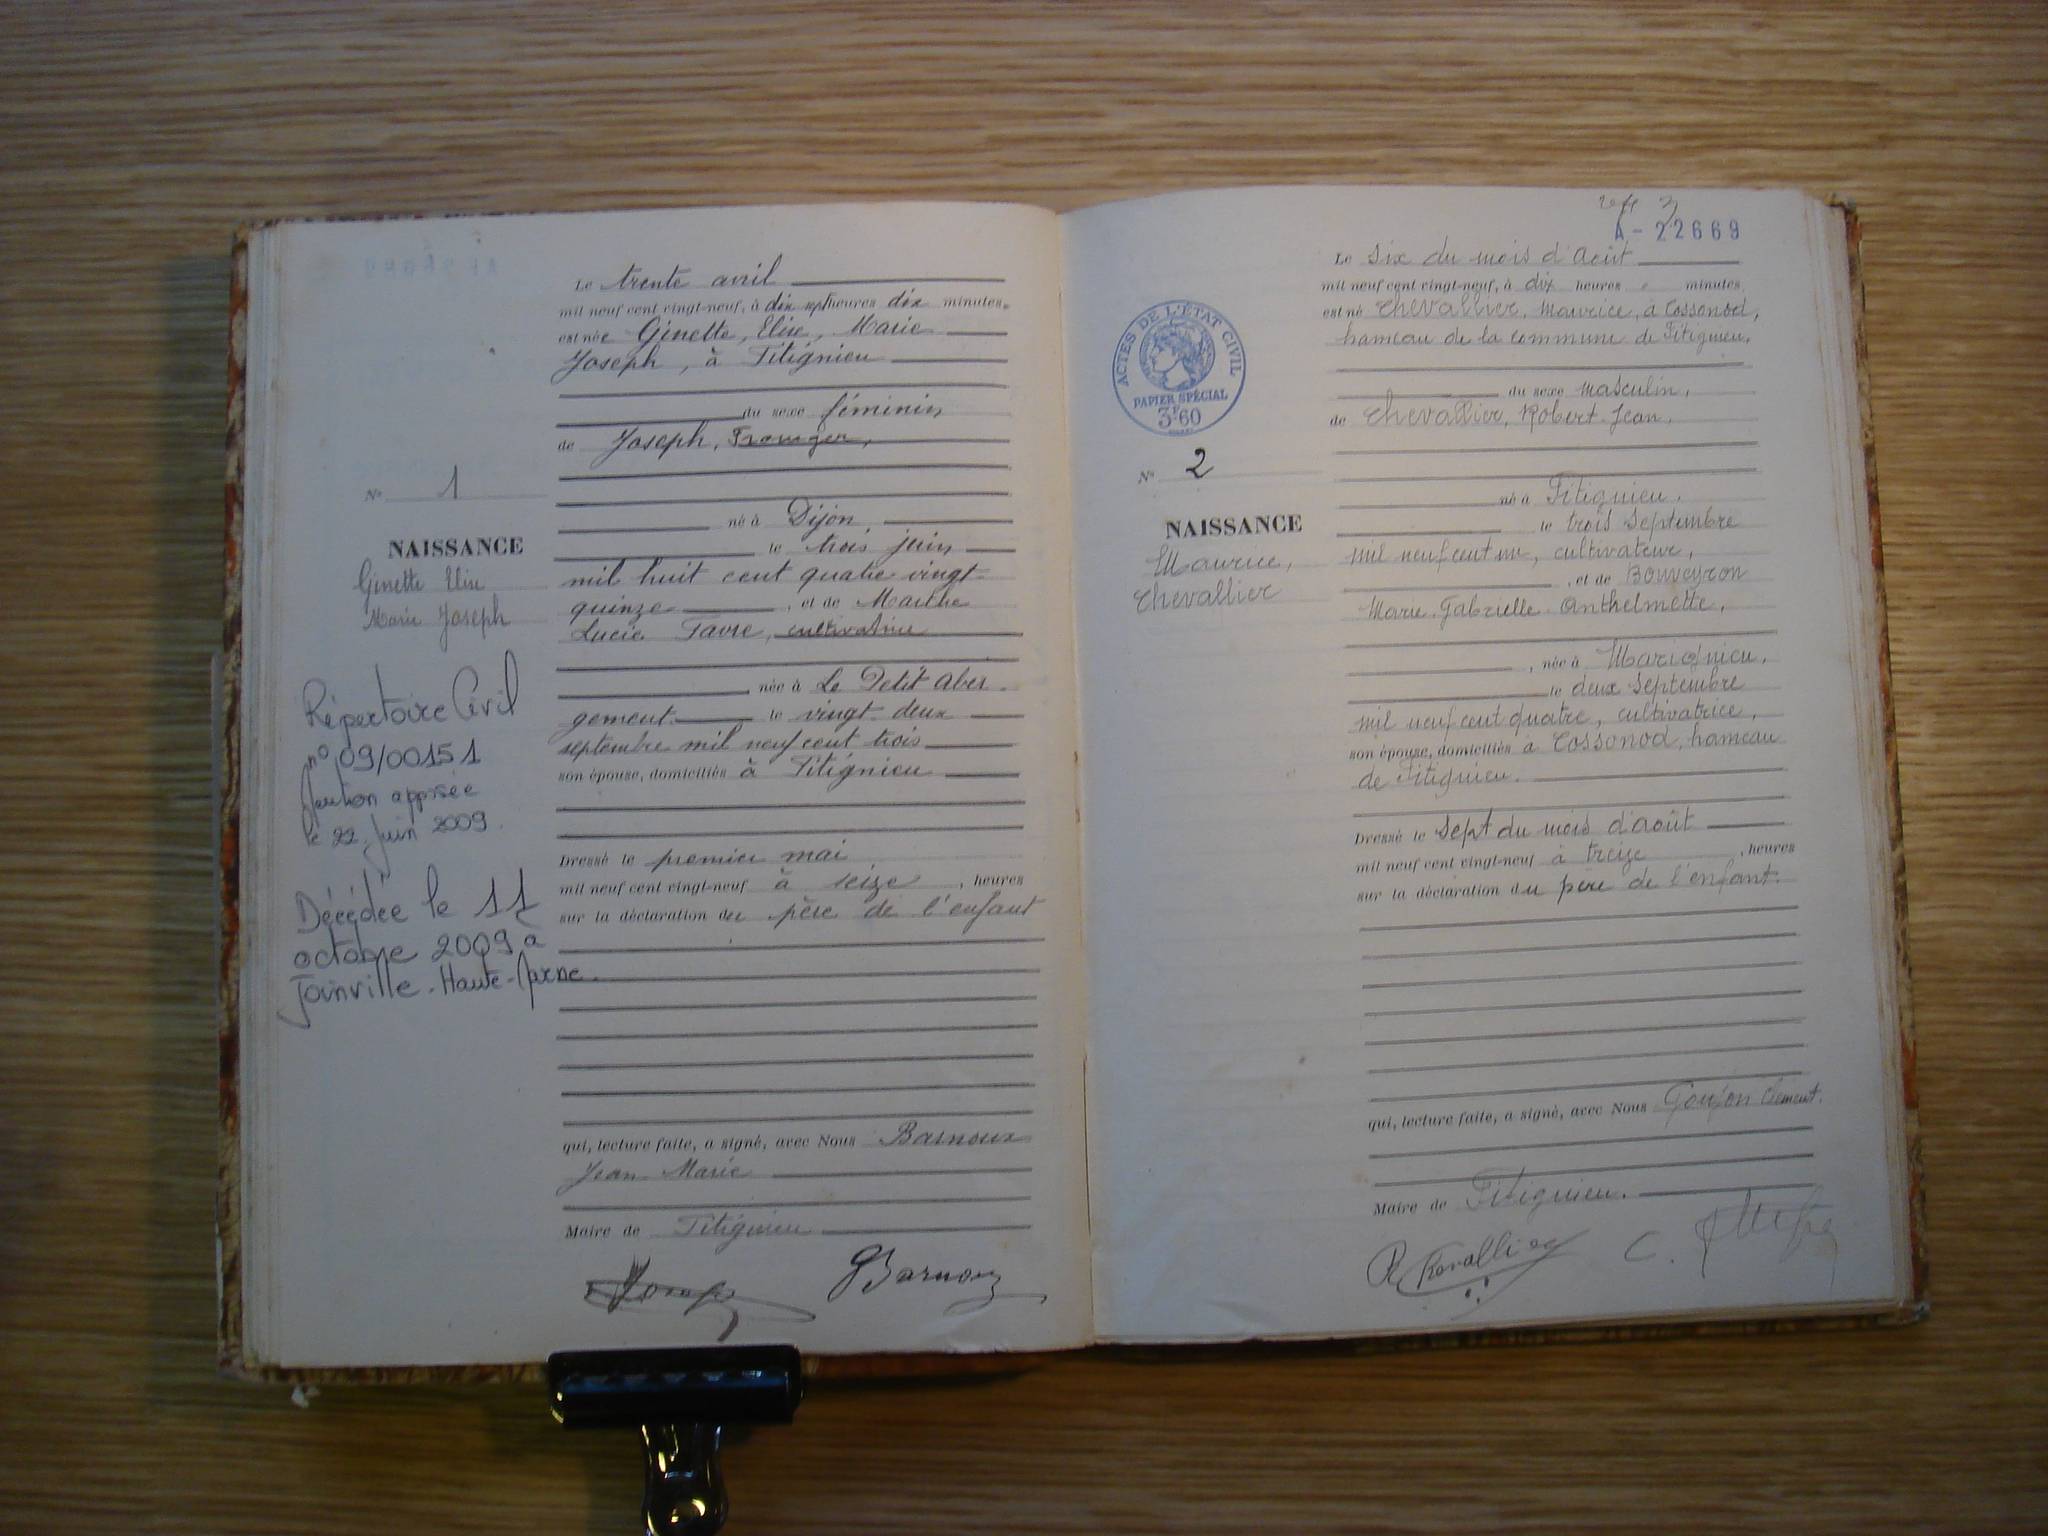 Le trente avril
mil neuf cent vingt-neuf, à dix sept heures dix minutes
est née Ginette, Elise, Marie
Joseph, à Titignieu
du sexe féminin,
de Joseph,
né à Dijon
le trois juin
mil huit cent quatre vingt
quinze, et de Marthe
Lucie Favre, cultivatrice
née à Le Petit Aber
gement le vingt deux
septembre mil neuf cent trois
son épouse, domiciliés à Titignieu
Dressé le premier mai
mil neuf cent vingt-neuf à seize, heures
sur la déclaration du père de l'enfant
qui, lecture faite, a signé, avec Nous Barnoux
Jean Marie
Maire de Titignieu
Barnoux
N° 1
NAISSANCE
Ginette Elise
Marie Joseph
Répertoire Civil
n° 09/00151
apposée
le 22 Juin 2009.
Décédée le 11
octobre 2009 à
Joinville - Haute-Marne.
3
A-22669
Le six du mois d'Août
mil neuf cent vingt-neuf, à dix heures " minutes
est né Chevallier, Maurice, à Cossonod,
hameau de la commune de Titignieu.
du sexe masculin,
de Chevallier, Robert Jean,
né à Titignieu.
le trois Septembre
mil neuf cent un, cultivateur,
, et de Bouveyron
Marie Gabrielle Anthelmette,
, née à Marignieu,
le deux Septembre
mil neuf cent quatre, cultivatrice,
son épouse, domiciliés à Cossonod, hameau
de Titignieu.
Dressé le Sept du mois d'août
mil neuf cent vingt-neuf à treize, heures
sur la déclaration du père de l'enfant.
qui, lecture faite, a signé, avec Nous Goujon Clément.
Maire de Titignieu.
R Chevallier C.
ACTES DE L'ÉTAT CIVIL
PAPIER SPÉCIAL
3F60
N° 2
NAISSANCE
Maurice,
Chevallier